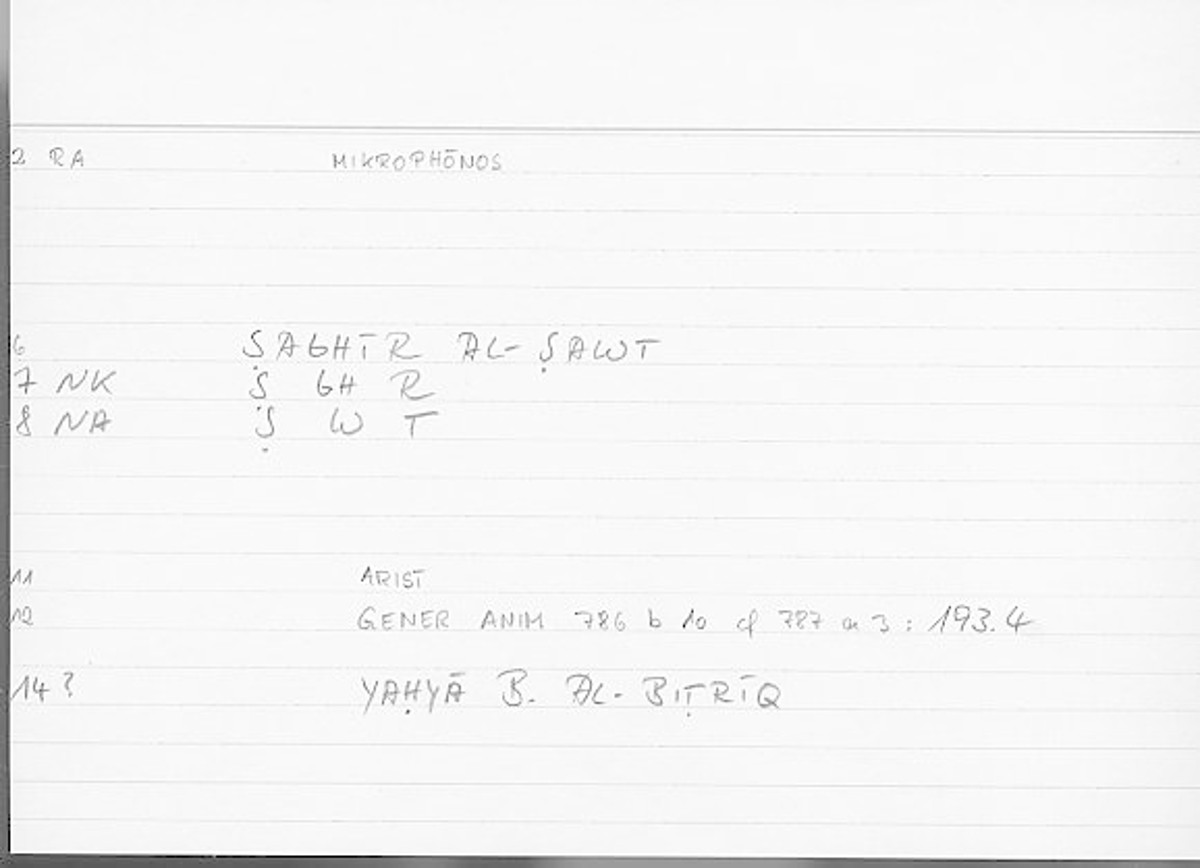 2 RA MIKROPHŌNOS
6 ṢAGHĪR AL-ṢAWT
7 NK Ṣ GH R
8 NA Ṣ W T
11 ARIST
12 GENER ANIM 786 b 10 cf 787 a 3 : 193.4
14 ? YAḤYĀ B. AL-BIṬRĪQ